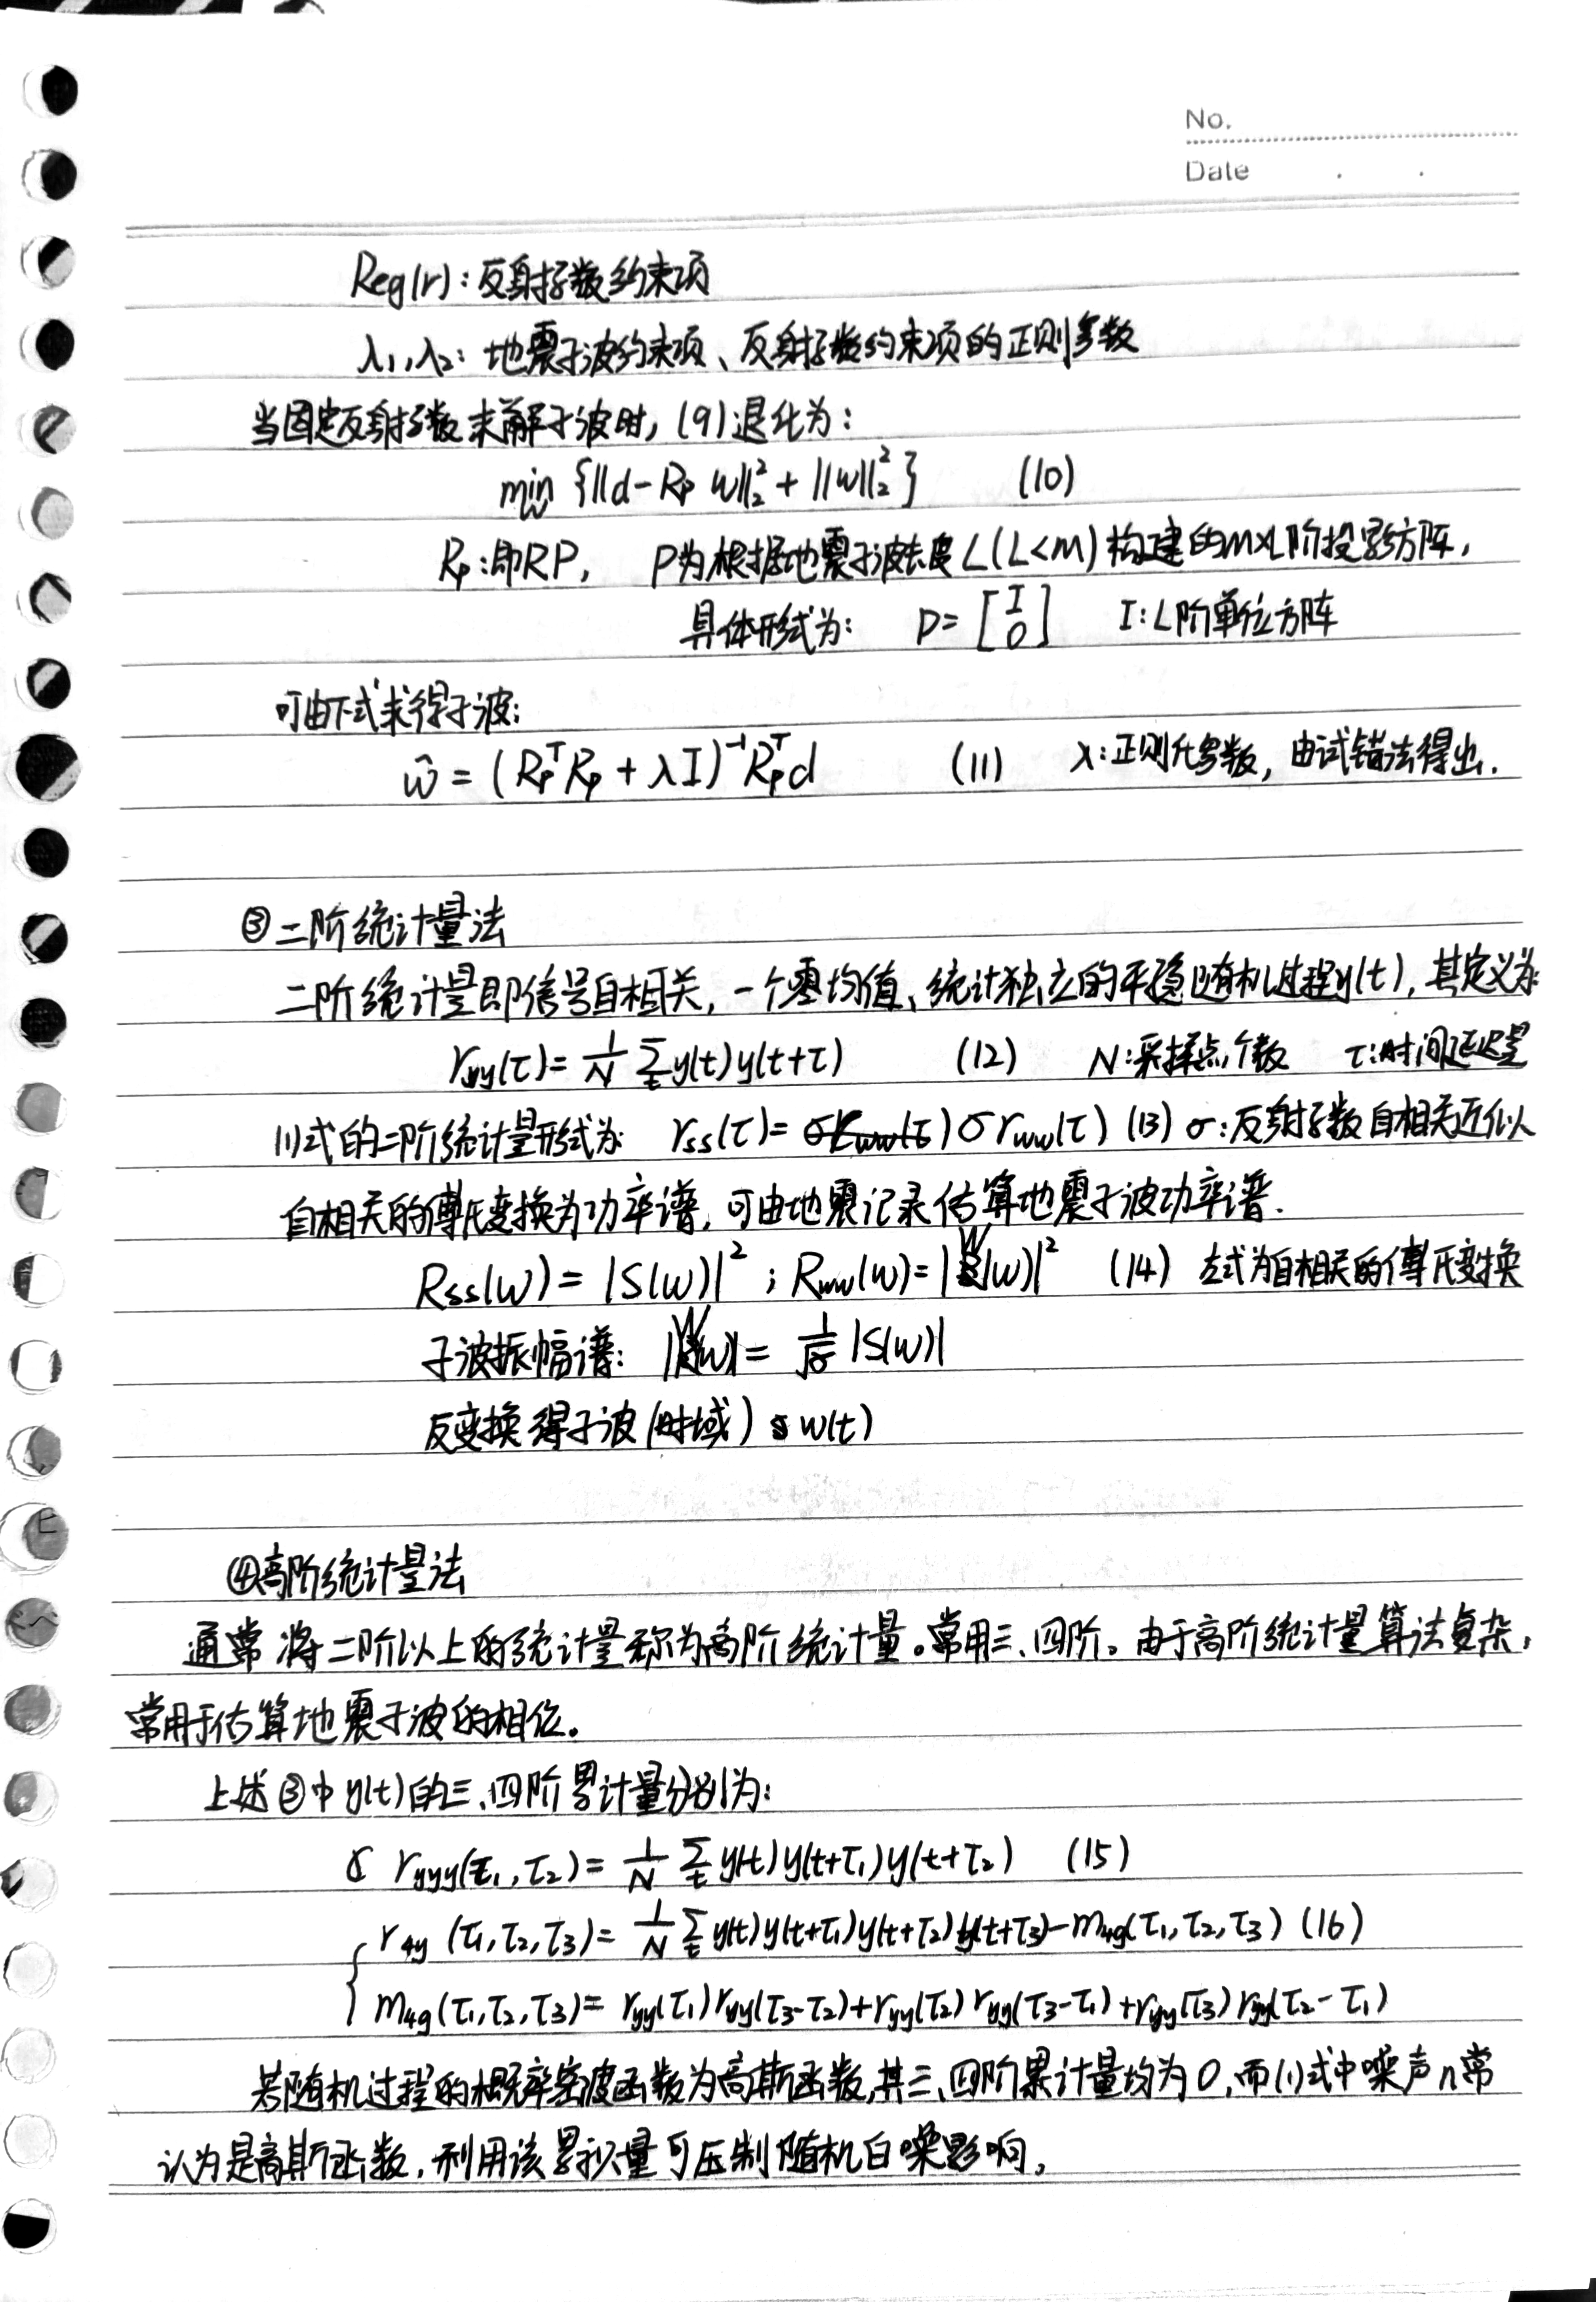 No.
Date
Reg(r): 反射系数约束项
λ₁,λ₂: 地震子波约束项、反射系数约束项的正则参数
当固定反射系数求解子波时, (9)退化为:
min_w {||d-R_P w||₂²+||w||₂²} (10)
R_P:即RP, P为根据地震子波长度L(L<m)构建的m×L阶投影方阵,
具体形式为: P=[I 0] I:L阶单位方阵
可由下式求得子波:
ŵ=(R_P^T R_P+λI)⁻¹R_P^T d (11) λ:正则化参数, 由试错法得出.
③二阶统计量法
二阶统计量即信号自相关, 一个零均值、统计独立的平稳随机过程y(t), 其定义为:
r_yy(τ)=1/N Σ_t y(t)y(t+τ) (12) N:采样点个数 τ:时间延迟量
(1)式的二阶统计量形式为: r_ss(τ)=σr_ww(τ) (13) σ:反射系数自相关近似
自相关的傅氏变换为功率谱, 可由地震记录估算地震子波功率谱.
R_ss(w)=|S(w)|²; R_ww(w)=|W(w)|² (14) 左式为自相关的傅氏变换
子波振幅谱: |W(w)|=1/√σ |S(w)|
反变换得子波(时域) w(t)
④高阶统计量法
通常将二阶以上的统计量称为高阶统计量。常用三、四阶。由于高阶统计量算法复杂,
常用于估算地震子波的相位。
上述③中y(t)的三、四阶累计量分别为:
r_yyy(τ₁,τ₂)=1/N Σ_t y(t)y(t+τ₁)y(t+τ₂) (15)
{ r_4y(τ₁,τ₂,τ₃)=1/N Σ_t y(t)y(t+τ₁)y(t+τ₂)y(t+τ₃)-m_4g(τ₁,τ₂,τ₃) (16)
m_4g(τ₁,τ₂,τ₃)=r_yy(τ₁)r_yy(τ₃-τ₂)+r_yy(τ₂)r_yy(τ₃-τ₁)+r_yy(τ₃)r_yy(τ₂-τ₁)
若随机过程的概率密度函数为高斯函数,其三、四阶累计量均为0,而(1)式中噪声n常
认为是高斯函数,利用该累积量可压制随机白噪影响,